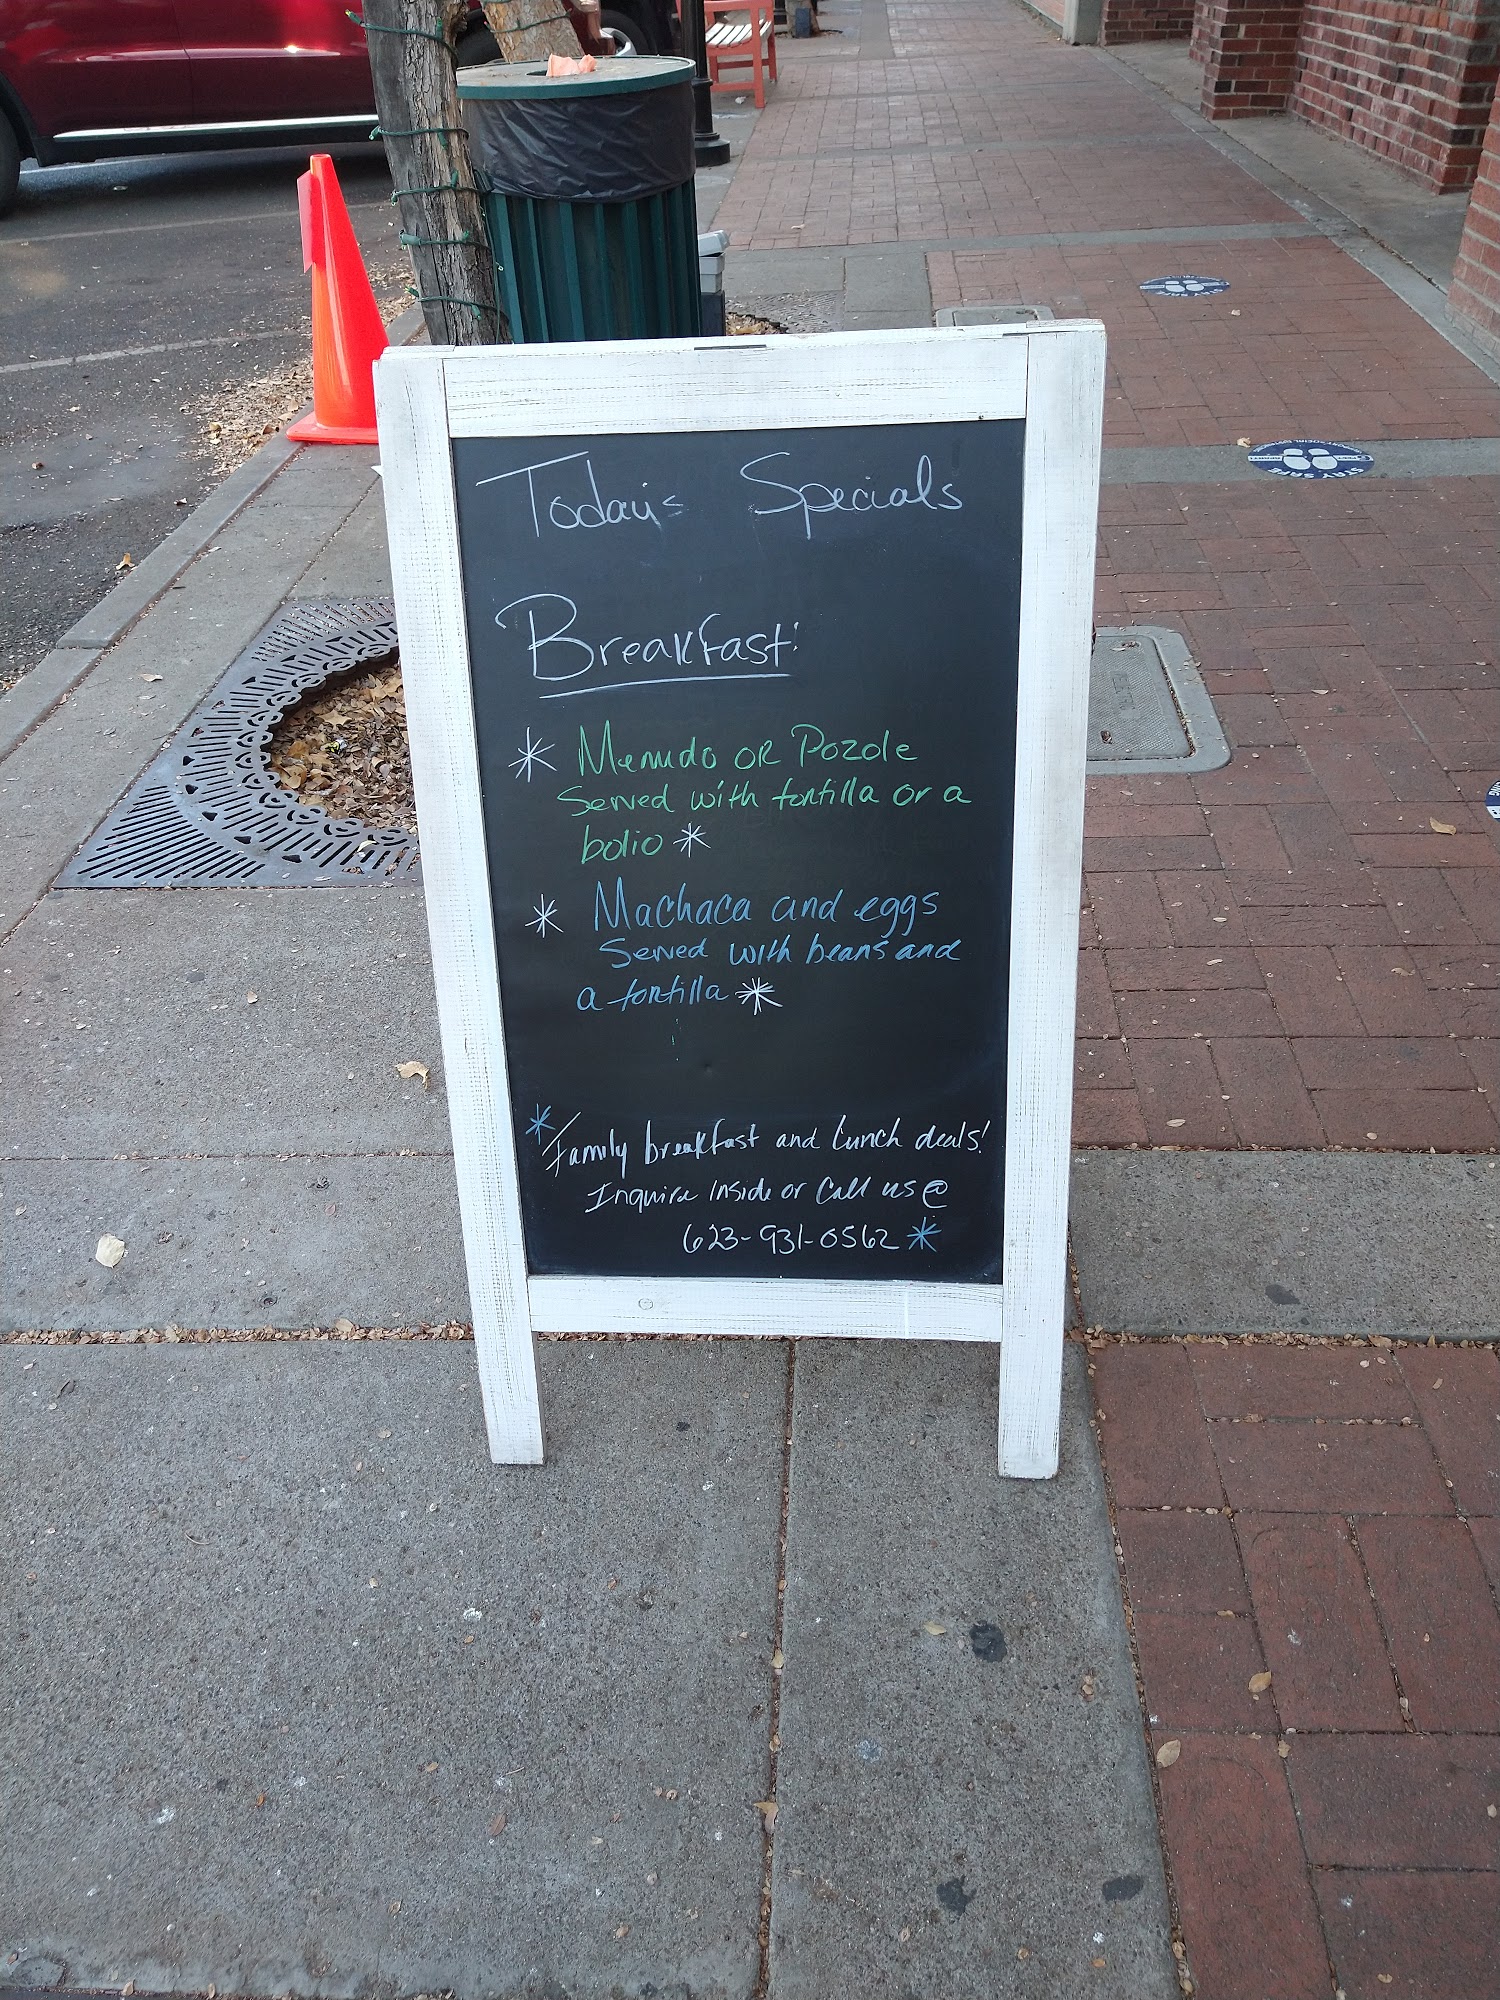 Today's Specials
Breakfast:
* Menudo or Pozole
Served with tortilla or a
bolio *
* Machaca and eggs
Served with beans and
a tortilla *
* Family breakfast and lunch deals!
Inquire inside or call us @
623-931-0562 *
STAY SAFE